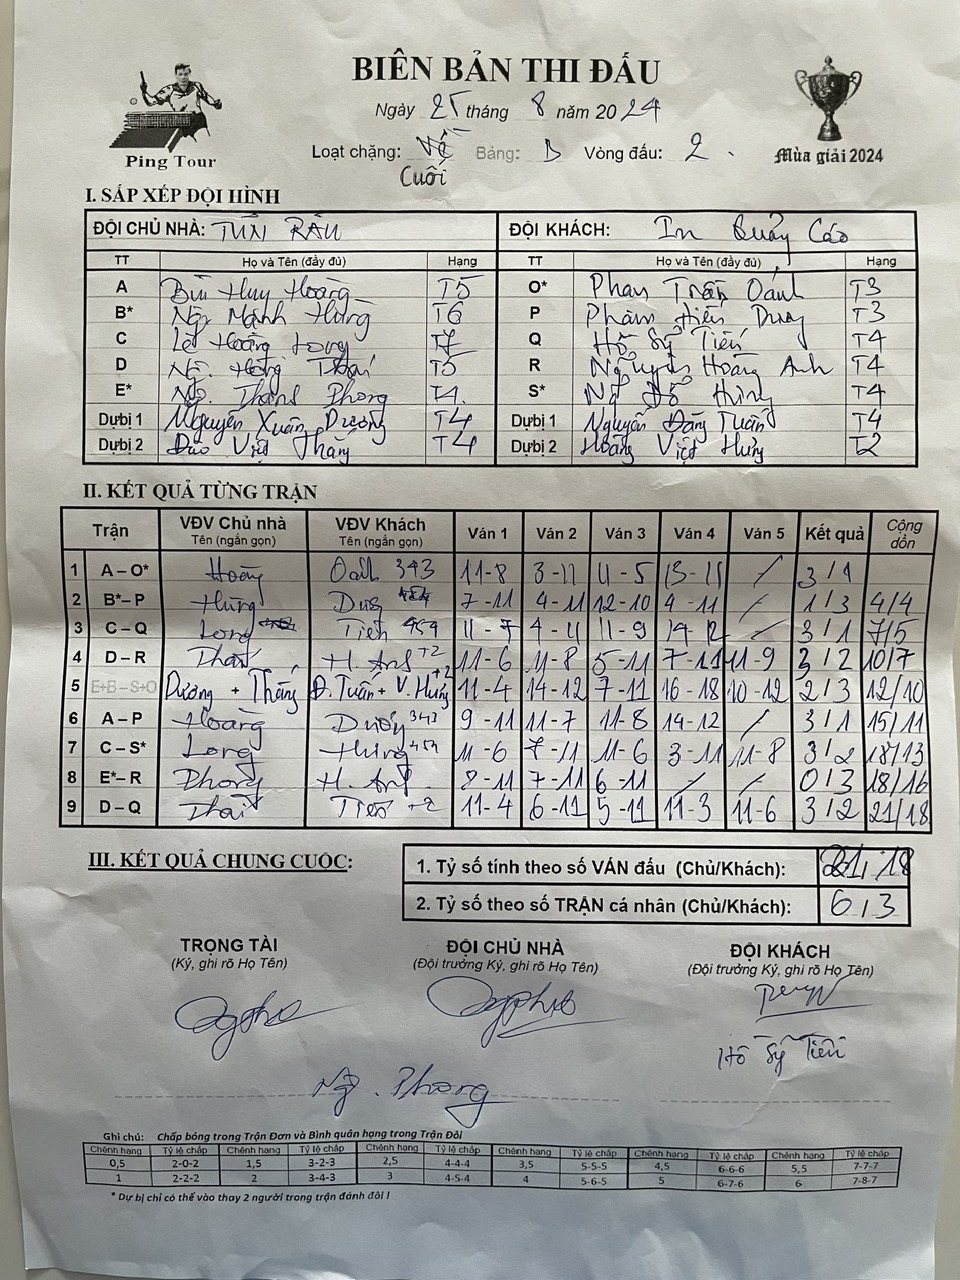 BIÊN BẢN THI ĐẤU
Ngày 25 tháng 8 năm 2024
Ping Tour
Loại chặng: Bảng: B Vòng đấu: 2.
Cuối
Mùa giải 2024
I. SẮP XẾP ĐỘI HÌNH
ĐỘI CHỦ NHÀ: TUẤN RÂU ĐỘI KHÁCH: In Quảng Cáo
TT Họ và Tên (đầy đủ) Hạng TT Họ và Tên (đầy đủ) Hạng
A Bùi Huy Hoàng T5 O* Phan Trần Oánh T3
B* Ng. Mạnh Hùng T6 P Phạm Hiển Dương T3
C Lê Hoàng Long Q Hồ Sỹ Tiến T4
D Ng. Hồng Thái T5 R Nguyễn Hoàng Anh T4
E* Ng. Thanh Phong T4. S* Ng Đỗ Hùng T4
Dự bị 1 Nguyễn Xuân Dương T4 Dự bị 1 Nguyễn Đăng Tuấn T4
Dự bị 2 Đào Việt Thắng T4 Dự bị 2 Hoàng Việt Hưng T2
II. KẾT QUẢ TỪNG TRẬN
Trận VĐV Chủ nhà Tên (ngắn gọn) VĐV Khách Tên (ngắn gọn) Ván 1 Ván 2 Ván 3 Ván 4 Ván 5 Kết quả Cộng dồn
1 A – O* Hoàng Oánh 343 11-8 3-11 11-5 13-11 / 3/1
2 B* – P Hùng Dương 7-11 4-11 12-10 4-11 / 1/3 4/4
3 C – Q Long Tiến 454 11-7 4-11 11-9 14-12 / 3/1 7/5
4 D – R Thái H. Anh +2 11-6 11-8 5-11 7-11 11-9 3/2 10/7
5 E+B – S+O Dương + Thắng Đ. Tuấn + V. Hưng +2 11-4 14-12 7-11 16-18 10-12 2/3 12/10
6 A – P Hoàng Dương 343 9-11 11-7 11-8 14-12 / 3/1 15/11
7 C – S* Long Hùng 454 11-6 7-11 11-6 3-11 11-8 3/2 18/13
8 E* – R Phong H. Anh. 8-11 7-11 6-11 / / 0/3 18/16
9 D – Q Thái Tiến +2 11-4 6-11 5-11 11-3 11-6 3/2 21/18
III. KẾT QUẢ CHUNG CUỘC:
1. Tỷ số tính theo số VÁN đấu (Chủ/Khách): 21/18
2. Tỷ số theo số TRẬN cá nhân (Chủ/Khách): 6/3
TRỌNG TÀI ĐỘI CHỦ NHÀ ĐỘI KHÁCH
(Ký, ghi rõ Họ Tên) (Đội trưởng Ký, ghi rõ Họ Tên) (Đội trưởng Ký, ghi rõ Họ Tên)
Hồ Sỹ Tiến
Ng. Phong
Ghi chú: Chấp bóng trong Trận Đơn và Bình quân hạng trong Trận Đôi
Chênh hạng Tỷ lệ chấp Chênh hạng Tỷ lệ chấp Chênh hạng Tỷ lệ chấp Chênh hạng Tỷ lệ chấp Chênh hạng Tỷ lệ chấp Chênh hạng Tỷ lệ chấp
0,5 2-0-2 1,5 3-2-3 2,5 4-4-4 3,5 5-5-5 4,5 6-6-6 5,5 7-7-7
1 2-2-2 2 3-4-3 3 4-5-4 4 5-6-5 5 6-7-6 6 7-8-7
* Dự bị chỉ có thể vào thay 2 người trong trận đánh đôi !